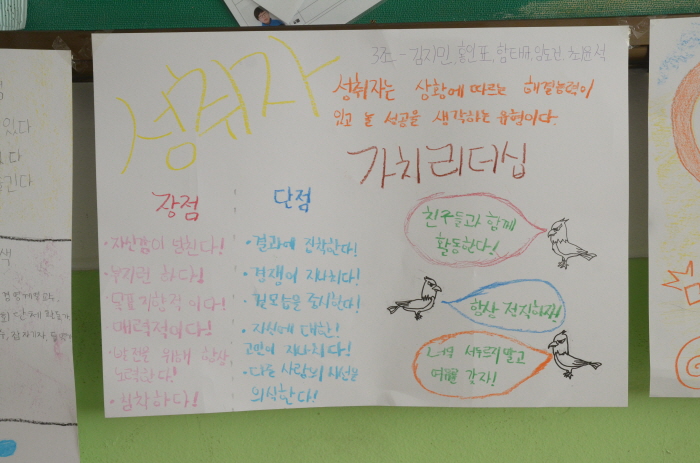 성취자
3조 - 김지민, 홍인표,
성취자는 상황에 따르는 해결능력이
있고 늘 성공을 생각하는 유형이다.
가치리더십
장점
· 자신감이 넘친다!
· 부지런 하다!
· 목표 지향적 이다!
· 매력적이다!
· 발전을 위해 항상
노력한다!
· 침착하다!
단점
· 결과에 집착한다!
· 경쟁이 지나치다!
· 겉모습을 중시한다!
· 자신에 대한!
고민이 지나치다!
· 다른 사람의 시선을
의식한다!
친구들과 함께
활동한다!
항상 정직하자!
서두르지 말고
있다
다
긴다
색